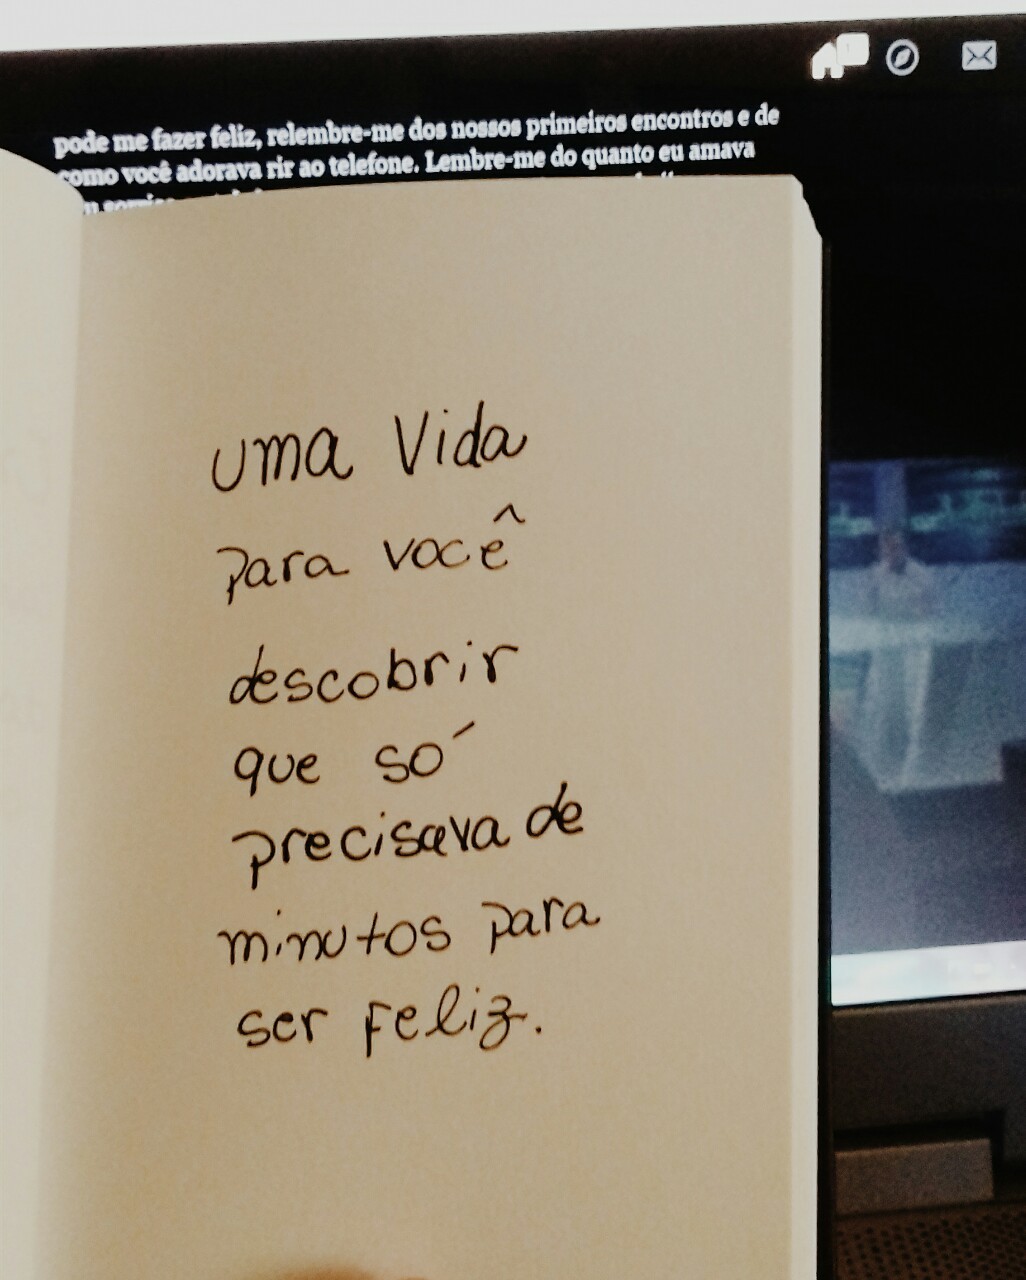 pode me fazer feliz, relembre-me dos nossos primeiros encontros e de
como você adorava rir ao telefone. Lembre-me do quanto eu amava
uma Vida
para você
descobrir
que só
precisava de
minutos para
ser Feliz.